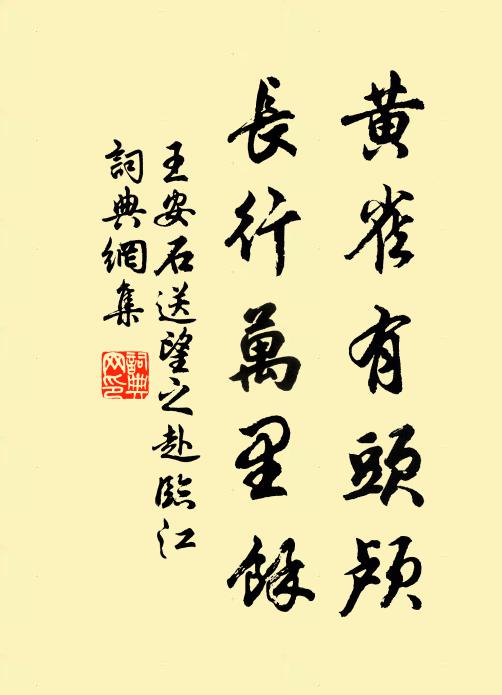 黄雀有頭顱
長行萬里餘
王安石送望之赴臨江
詞典網集
詞典網印